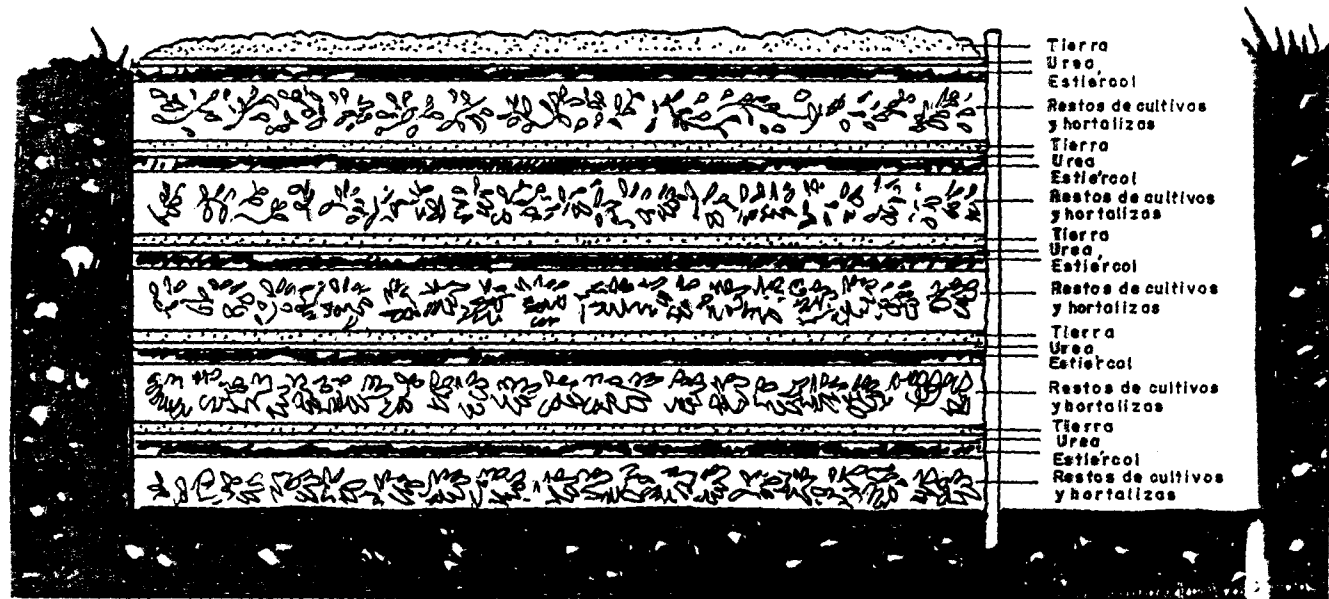 Tierra
Urea
Estiércol
Restos de cultivos
y hortalizas
Tierra
Urea
Estiércol
Restos de cultivos
y hortalizas
Tierra
Urea
Estiércol
Restos de cultivos
y hortalizas
Tierra
Urea
Estiércol
Restos de cultivos
y hortalizas
Tierra
Urea
Estiércol
Restos de cultivos
y hortalizas